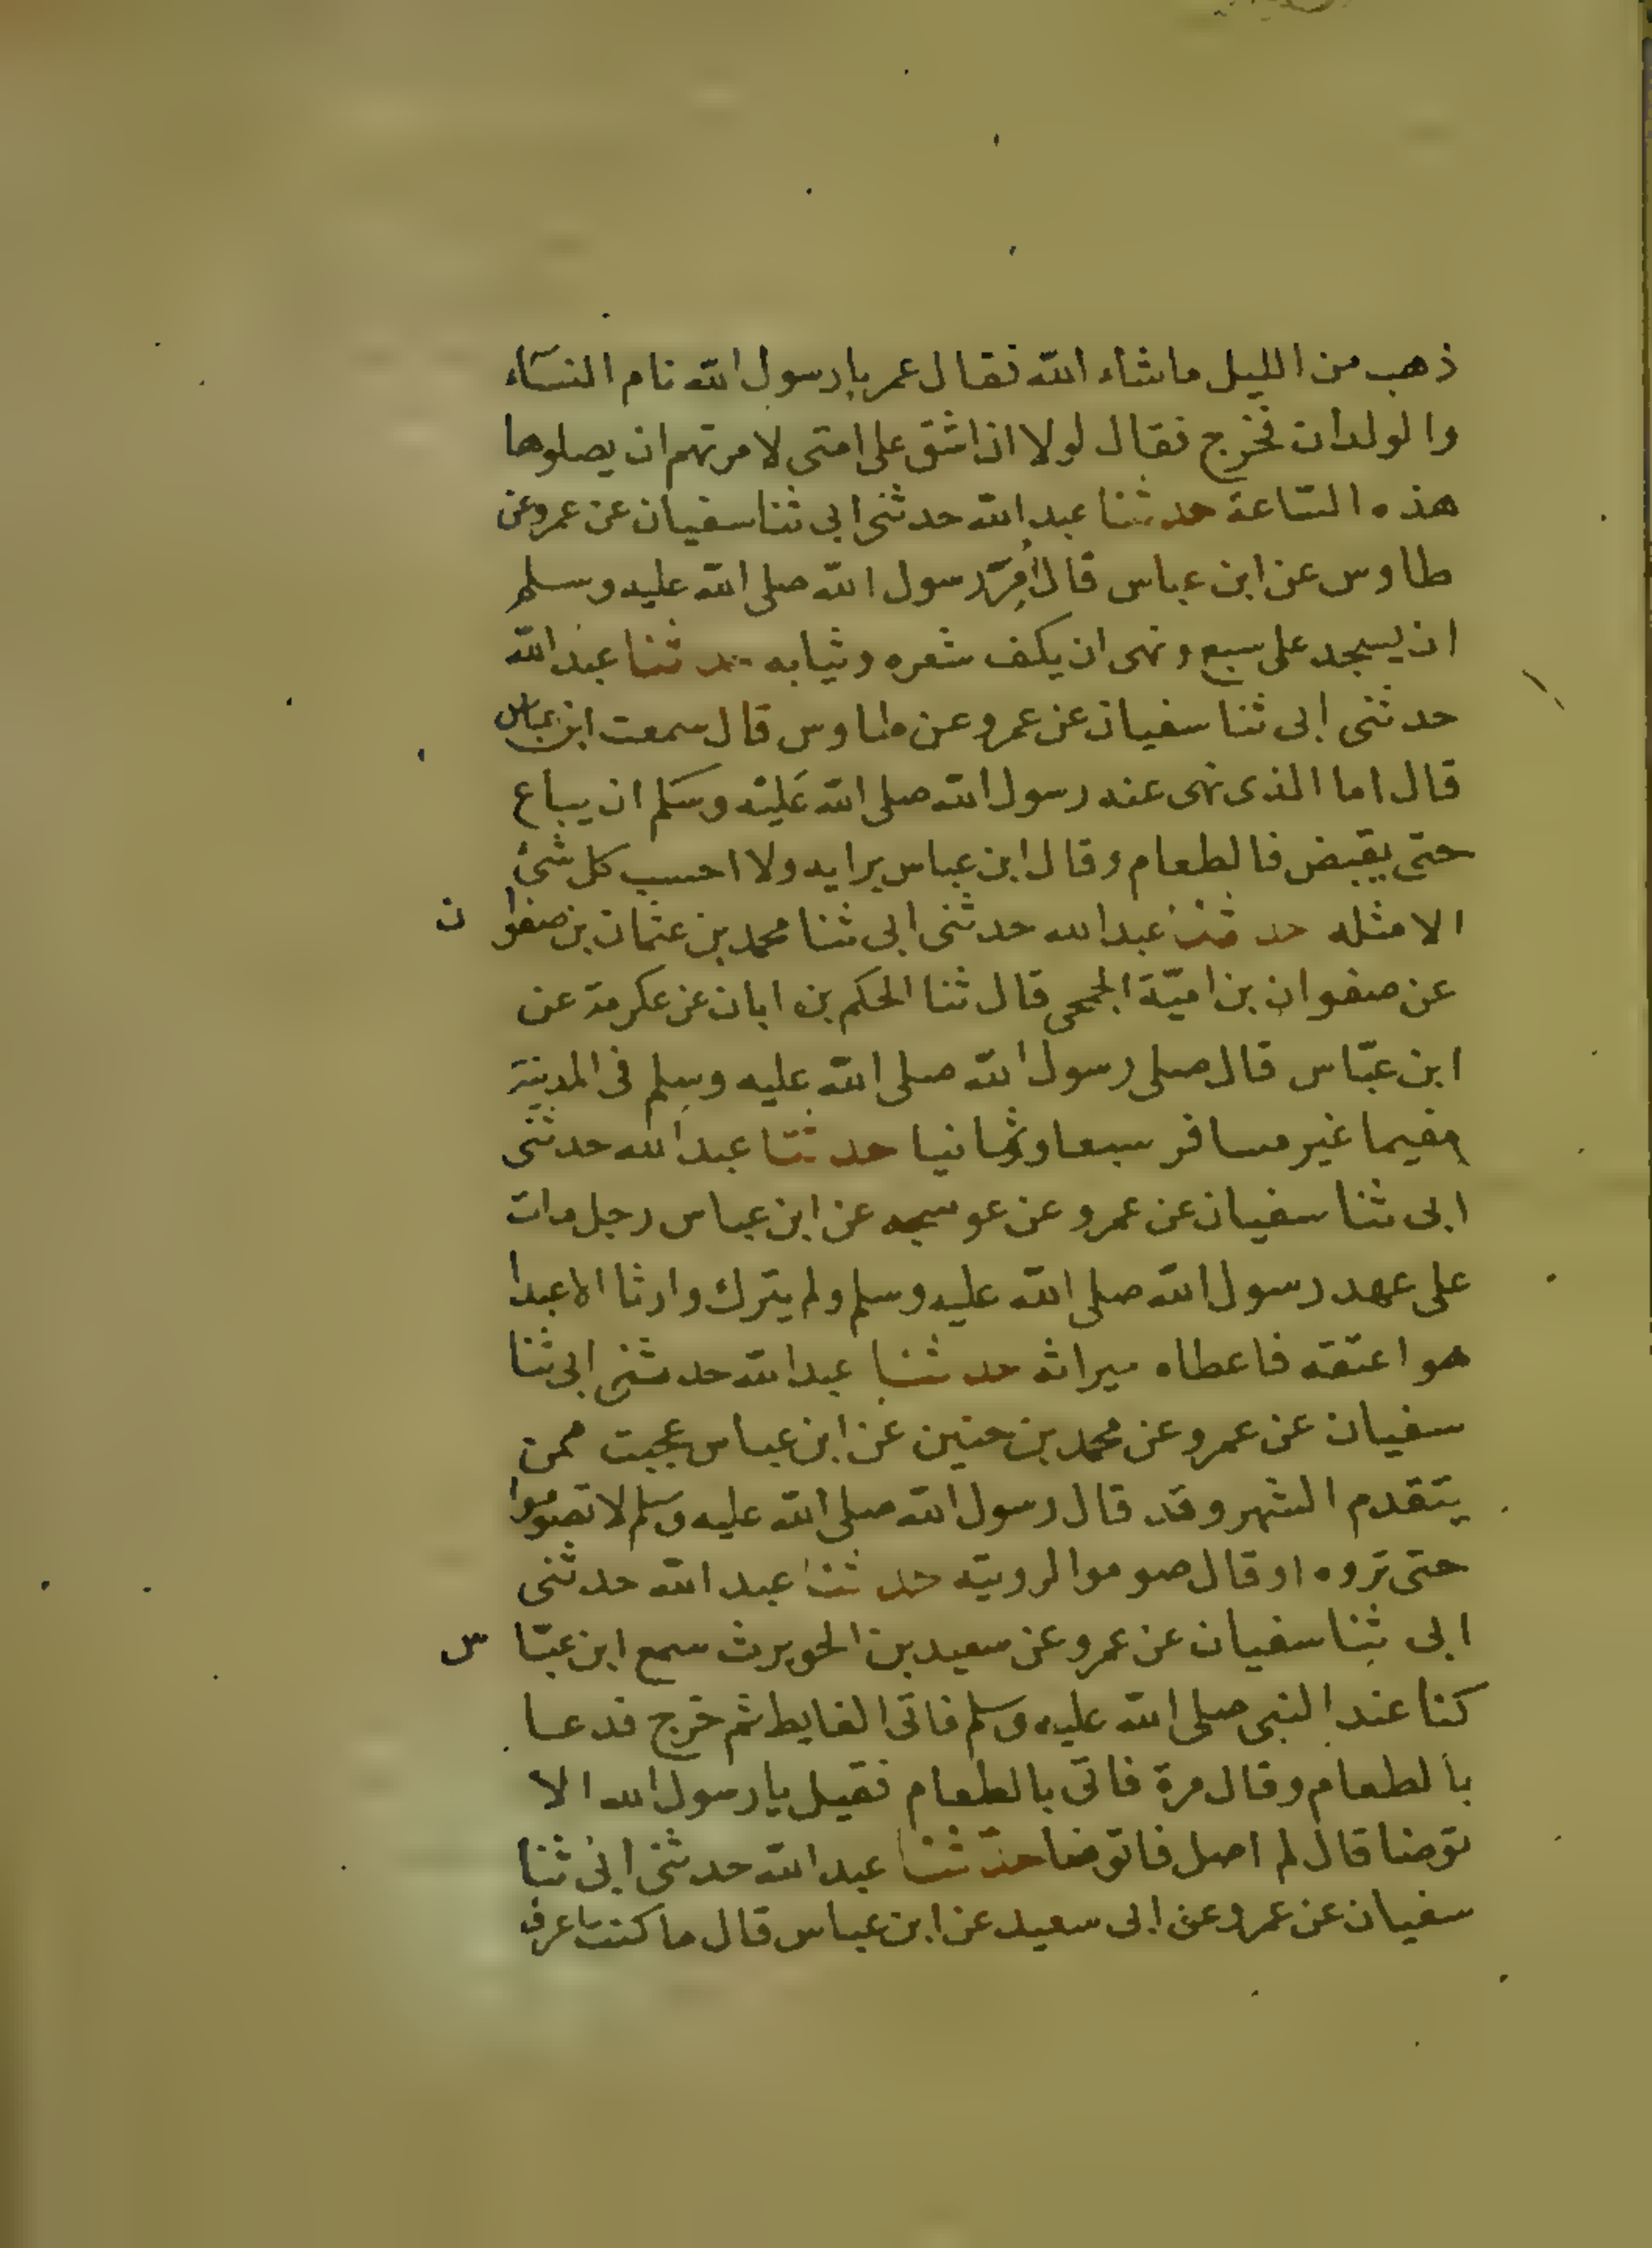 ذهب من الليل ما شاء الله فقال عمر يا رسول الله نام النسآء
والولدان فخرج فقال لولا ان اشق على امتى لامرتهم ان يصلوها
هذه الساعة حدثنا عبد الله حدثنى ابى ثنا سفيان عن عمرو عن
طاوس عن ابن عباس قال أُمِرَ رسول الله صلى الله عليه وسلم
ان يسجد على سبع ونهى ان يكف شعره وثيابه حدثنا عبد الله
حدثنى ابى ثنا سفيان عن عمرو عن طاوس قال سمعت ابن عباس
قال اما الذى نهى عنه رسول الله صلى الله عَليْه وسَلم ان يباع
حتى يقبض فالطعام وقال ابن عباس برايه ولا احسب كل شئ
الا مثله حدثنا عبد الله حدثنى ابى ثنا محمد بن عثمان بن صفوان
عن صفوان بن اميّة الجمحى قال ثنا الحكم بن ابان عن عكرمة عن
ابن عبّاس قال صلى رسول الله صلى الله عليه وسلم فى المدينة
مقيما غير مسافر سبعا وثمانيا حدثنا عبد الله حدثنى
ابى ثنا سفيان عن عمرو عن عوسجه عن ابن عباس رجل مات
على عهد رسول الله صلى الله عليه وسلم ولم يترك وارثا الا عبدا
هو اعتقه فاعطاه ميراثه حدثنا عبد الله حدثنى ابى ثنا
سفيان عن عمرو عن محمد بن حنين عن ابن عباس عجبت ممن
يتقدم الشهر وقد قال رسول الله صلى الله عليه وسلم لا تصوموا
حتى تروه او قال صوموا لرويته حدثنا عبد الله حدثنى
ابى ثنا سفيان عن عمرو عن سعيد بن الحويرث سمع ابن عبّاس
كنا عند النبى صلى الله عليه وسلم فاتى الغايط ثم خرج فدعا
بالطعام وقال مرة فاتى بالطعام فقيل يا رسول الله الا
توضا قال لم اصل فاتوضا حدثنا عبد الله حدثنى ابى ثنا
سفيان عن عمرو عن ابى سعيد عن ابن عباس قال ما كنت اعرف